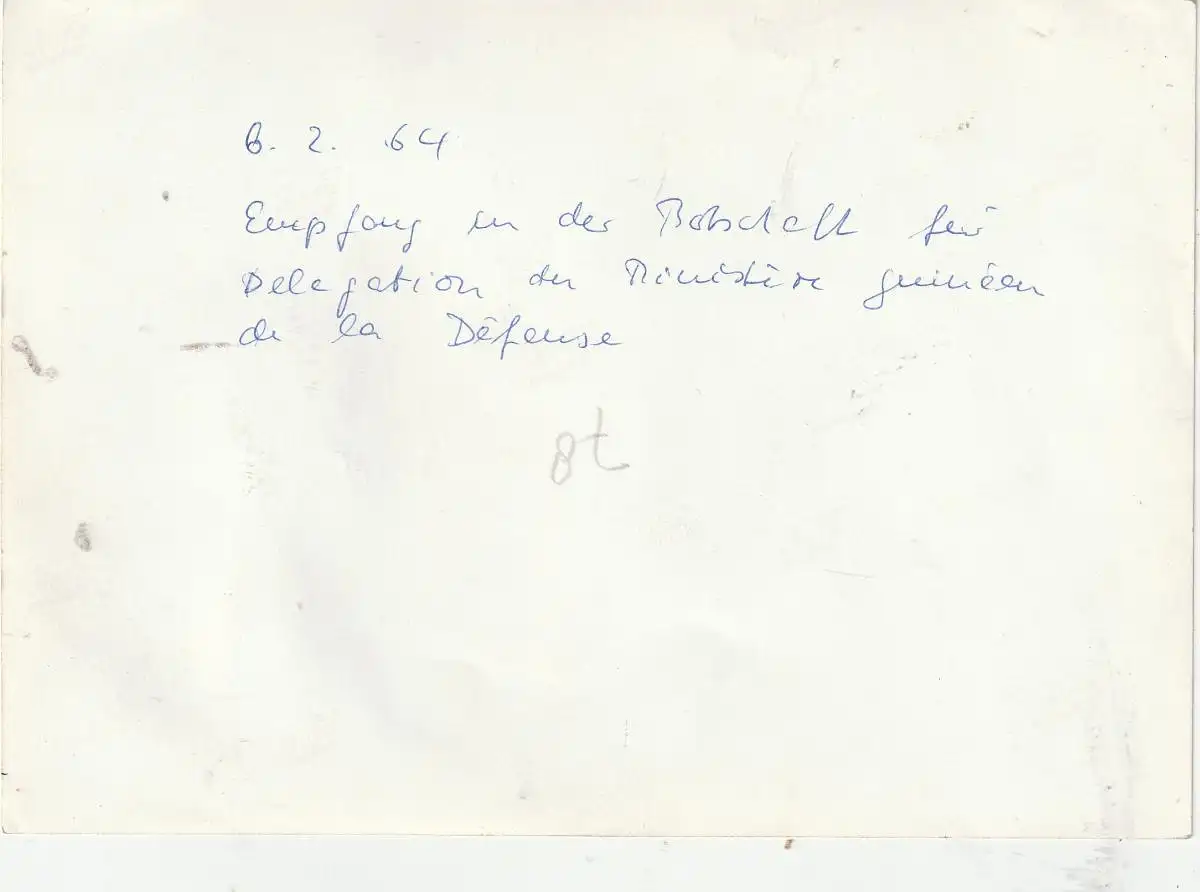 6. 2. 64
Empfang in der Botschaft für
Delegation du Ministère guinéen
de la Défense